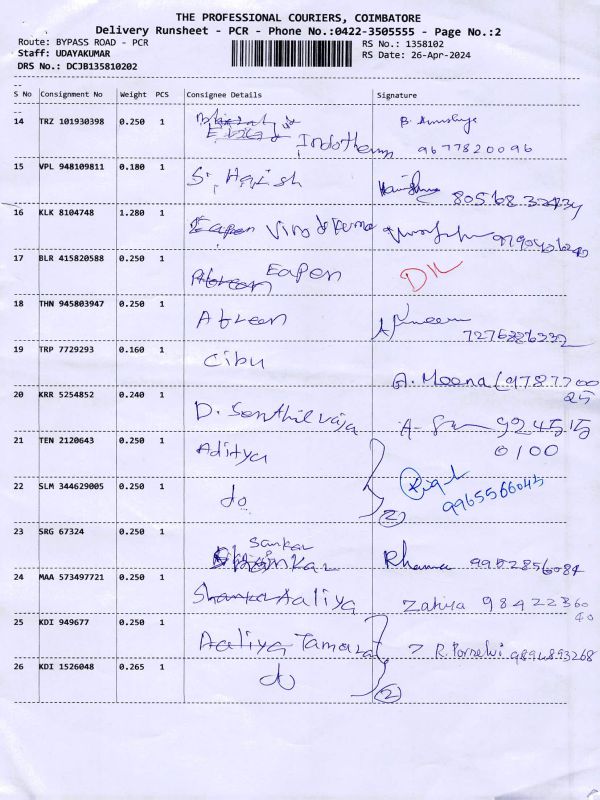 THE PROFESSIONAL COURIERS, COIMBATORE
Delivery Runsheet - PCR - Phone No.:0422-3505555 - Page No.:2
Route: BYPASS ROAD - PCR
RS No.: 1358102
Staff: UDAYAKUMAR
RS Date: 26-Apr-2024
DRS No.: DCJB135810202
S No Consignment No Weight PCS Consignee Details Signature
14 TRZ 101930398 0.250 1 Indotherm
9677820096
15 VPL 948109811 0.180 1 S. Harish
16 KLK 8104748 1.280 1 Vinod Kumar
17 BLR 415820588 0.250 1 Eapen
18 THN 945803947 0.250 1 Afreen
19 TRP 7729293 0.160 1 Cibu
A. Meena (9787700
25
20 KRR 5254852 0.240 1 D. Senthilvaja
9245515
0100
21 TEN 2120643 0.250 1 Aditya
22 SLM 344629005 0.250 1 do
2
9965566045
23 SRG 67324 0.250 1 Sankar
9952856087
24 MAA 573497721 0.250 1 Aaliya Zahiya 98422360
40
25 KDI 949677 0.250 1 Aaliya Tamara
9894893268
26 KDI 1526048 0.265 1 do
2